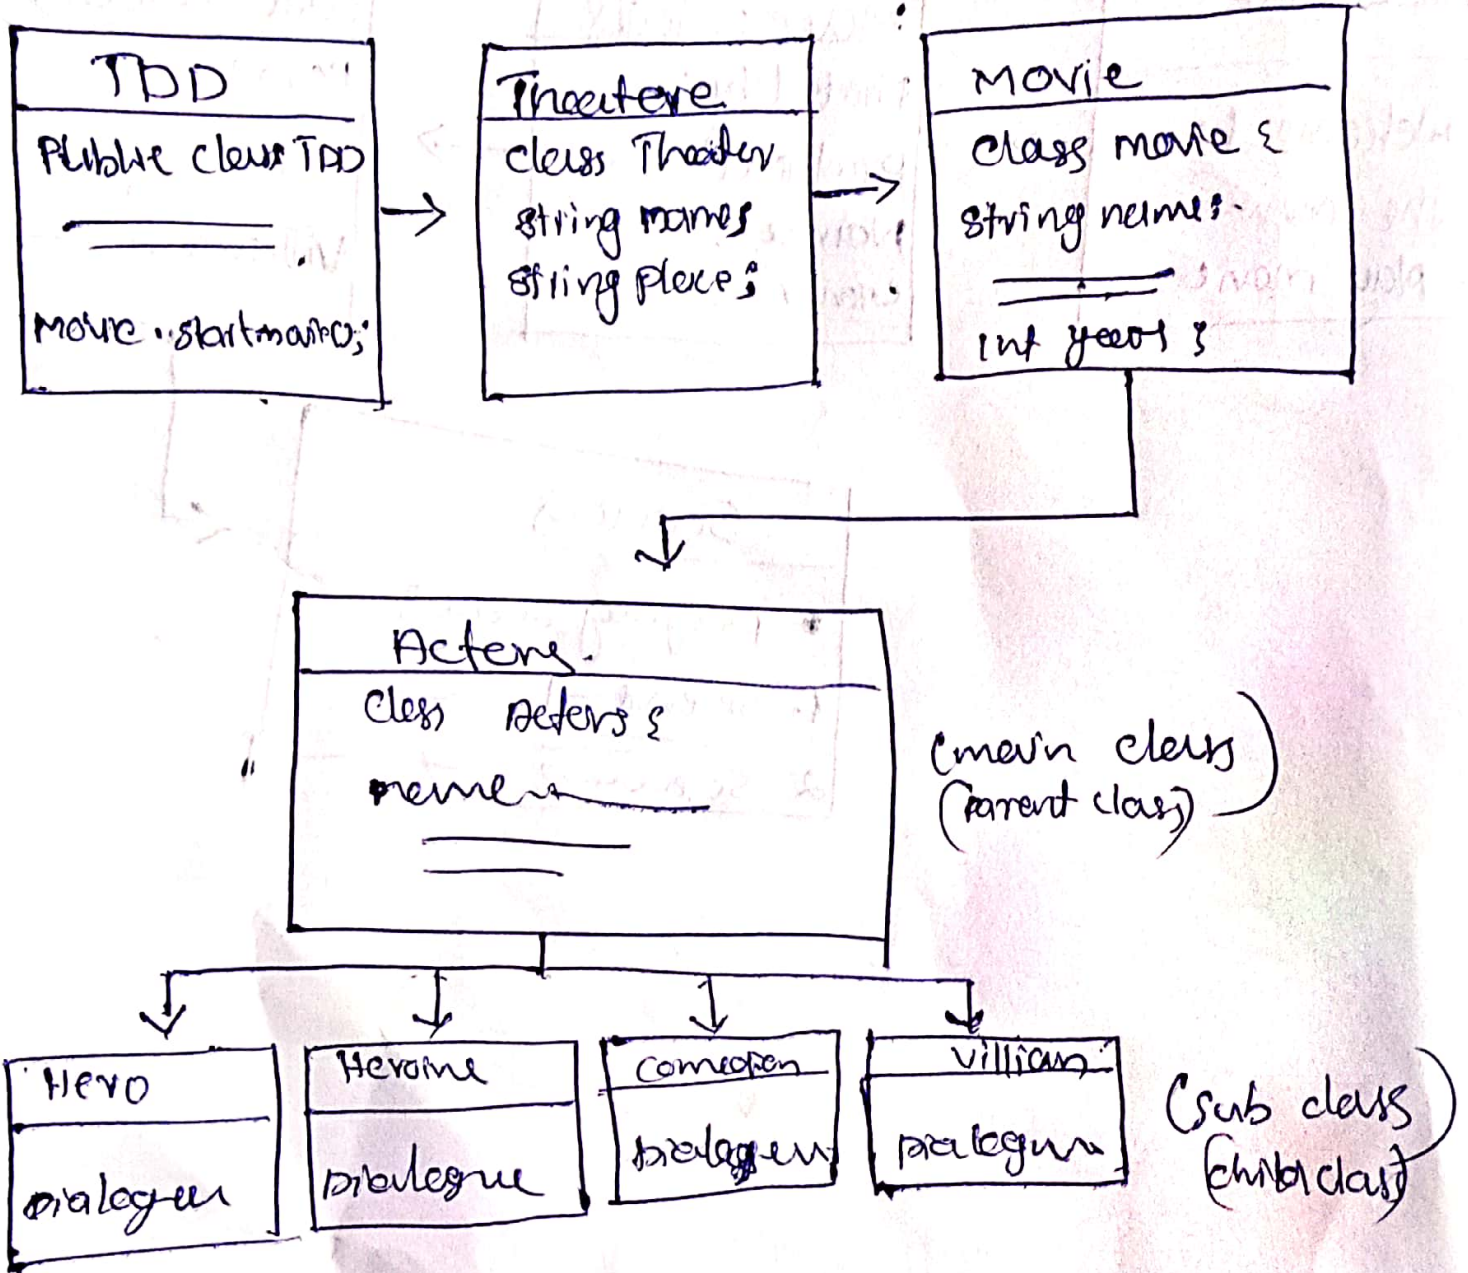 TDD
Public class TDD
Movie.startmovie();
Theatere
class Theater
string names
string place;
Movie
class movie {
string name;
int years;
Acters.
class Acters {
name
(main class)
(parent class)
Hero
Dialogue
Heroine
Dialogue
Comedian
Dialogue
villian
Dialogue
(sub class)
(child class)